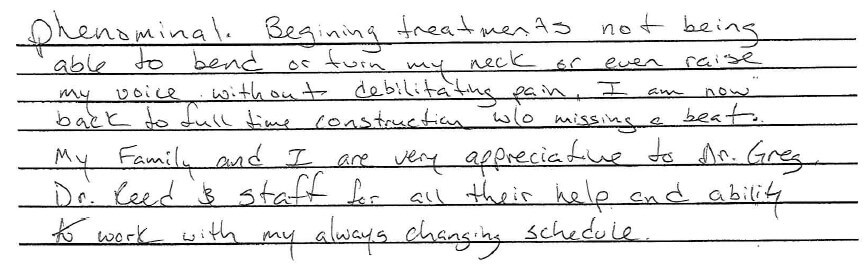 Phenominal. Begining treatments not being
able to bend or turn my neck or even raise
my voice without debilitating pain, I am now
back to full time construction w/o missing a beat.
My Family and I are very appreciative to Dr. Greg,
Dr. Reed & staff for all their help and ability
to work with my always changing schedule.